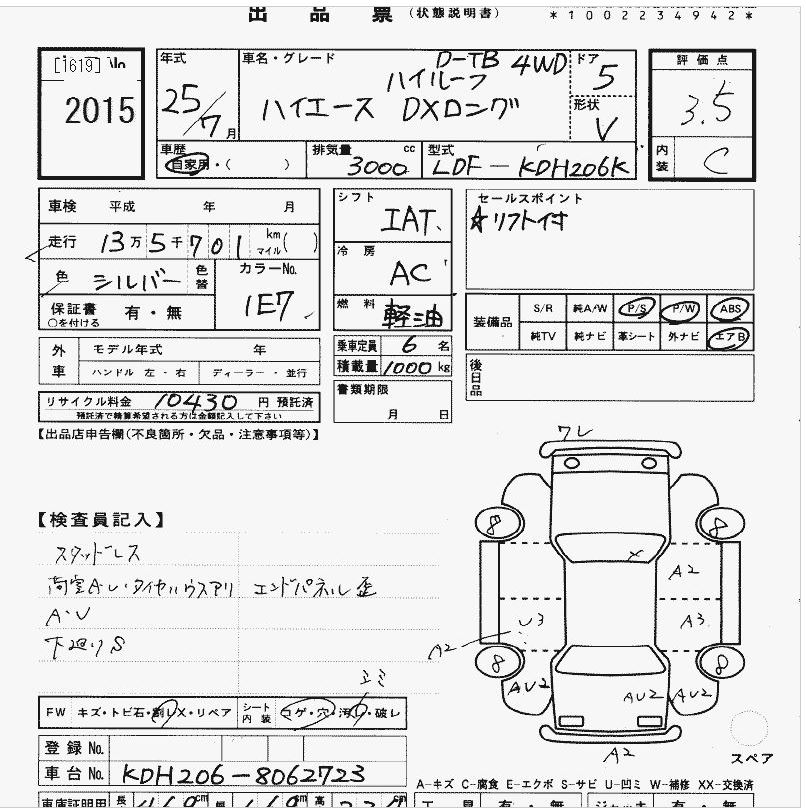 出品票 (状態説明書) *1002234942*
[1619] No
2015
年式 25/7 月
車名・グレード D-TB 4WD
ハイルーフ
ハイエース DXロング
ドア 5
形状 V
評価点 3.5
内装 C
車歴 自家用・( )
排気量 3000 cc
型式 LDF-KDH206K
車検 平成 年 月
走行 13万5千701 km マイル( )
色 シルバー 色替
カラーNo. 1E7
保証書 有・無
○を付ける
シフト IAT.
冷房 AC
燃料 軽油
セールスポイント
☆リフト付
装備品 S/R 純A/W P/S P/W ABS
純TV 純ナビ 革シート 外ナビ エアB
外車 モデル年式 年
ハンドル 左・右 ディーラー・並行
乗車定員 6 名
積載量 1000 kg
後日品
リサイクル料金 10430 円 預託済
預託済で精算希望される方は金額記入して下さい
書類期限
月 日
【出品店申告欄(不良箇所・欠品・注意事項等)】
ワレ
【検査員記入】
スタッドレス
荷室Aレ・タイヤハウスアリ エンドパネル歪
A・U
下廻りS
シミ
8 8
x
A2
U3 A3
A2
8 8
AU2 AU2 AU2
A2
スペア
FW キズ・トビ石・割レX・リペア シート内装 コゲ・穴・汚レ・破レ
登録No.
車台No. KDH206-8062723
A-キズ C-腐食 E-エクボ S-サビ U-凹ミ W-補修 XX-交換済
車庫証明用 長 169 cm 幅 169 cm 高
工具 有・無 ジャッキ 有・無